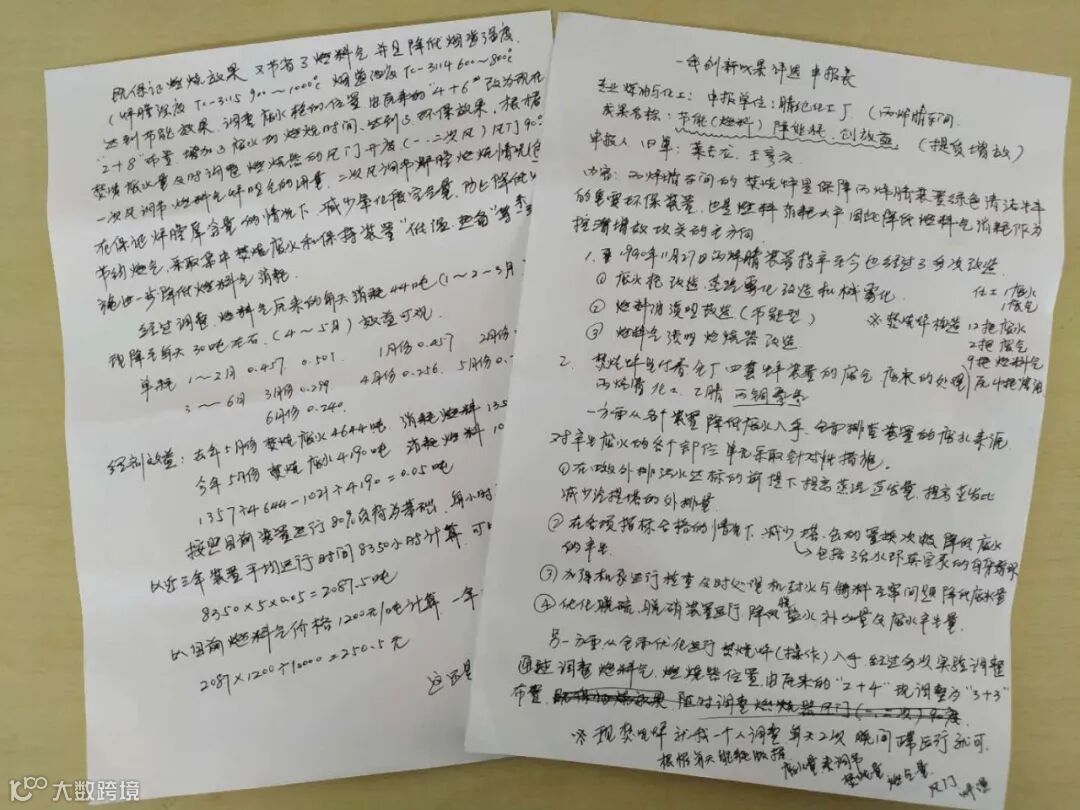 一线创新成果评选申报表
专业炼油与化工: 申报单位: 腈纶化工厂 (丙烯腈车间
成果名称: 节能(燃料)降能耗、创效益 (提质增效)
申报人 旧单:
内容: 丙烯腈车间的焚烧炉是保障丙烯腈装置绿色清洁生产
的重要环保装置, 也是燃料消耗大户因此降低燃料气消耗作为
挖潜增效攻关的主方向.
1. 至1990年11月27日丙烯腈装置投产至今也经过3多次改造.
① 废水枪改造. 蒸汽雾化改造机械雾化. 化工 1废水
1废气
② 燃料油烧咀改造. (节能型) ※焚烧炉构造 12把废水
2把废气
③ 燃料气烧咀燃烧器改造 9把燃料气
2. 焚烧炉具付着全厂四套装置的废气废液的处理
丙烯腈 化工 乙腈 丙酮氰醇
一方面从各个装置降低废水入手, 全面排查装置的废水来源
对产生废水的各个部位单元采取针对性措施.
① 在四效外排污水达标的前提下提高蒸汽蒸发量. 提高蒸发比
减少急冷塔的外排量
② 在各项指标合格的情况下, 减少塔、台的置换次数降低废水
的产生. 包括3台水环真空泵的
③ 加强机泵运行检查及时处理机封水与填料正常问题降低废水量
④ 优化脱硫、脱硝装置运行, 降低盐水补加量及废水产生量.
另一方面从全面优化运行焚烧炉(操作)入手, 经过多次实验调整
通过调整燃料气、燃烧器位置, 由原来的“2+4”现调整为“3+3”
布置. 既保证燃烧效果 随时调整燃烧器风门(一、二次)角度
※ 现焚烧炉就我一个人调整每天2次 晚间正常运行就可.
根据每天能耗数据 废水量来调节
焚烧量 燃气量 风门 炉温
既保证燃烧效果 又节省了燃料气并且降低烟道温度.
(炉膛温度 TC-3115 900~1000℃ 烟道温度 TC-3114 600~800℃
达到节能效果. 调整废水枪的位置由原来的“4+6”改为现在
“2+8”布置, 增加了废水的燃烧时间、达到了环保效果, 根据
焚烧废水量及时调整燃烧器的风门开度(一、二次风)风门90°
一次风调节燃料气烧咀气的调量. 二次风调节解膛燃烧情况(
在保证炉膛氧含量的情况下, 减少氧化段完含量, 防止降低
节约燃气, 采取集中焚烧废水和保持装置“低温、热备”等
施进一步降低燃料气消耗
经过调整. 燃料气原来的每天消耗44吨 (1~2~3月
现降至每天 30吨左右. (4~5月) 效益可观.
单耗 1~2月 0.457 0.501. 1月份 0.457 2月份
3~6月 3月份 0.299 4月份 0.256. 5月份 0.
6月份 0.240.
经济效益: 去年5月份焚烧废水 4644吨, 消耗燃料 135
今年5月份 焚烧废水 4190吨 消耗燃料 10
1357÷4644-1021÷4190=0.05吨
按照目前装置运行80%负荷为基础, 每小时
以近三年装置平均运行时间8350小时计算, 可
8350×5×0.05=2087.5吨
以目前燃料气价格1200元/吨计算 一年
2087×1200÷10000=250.5元
这还是